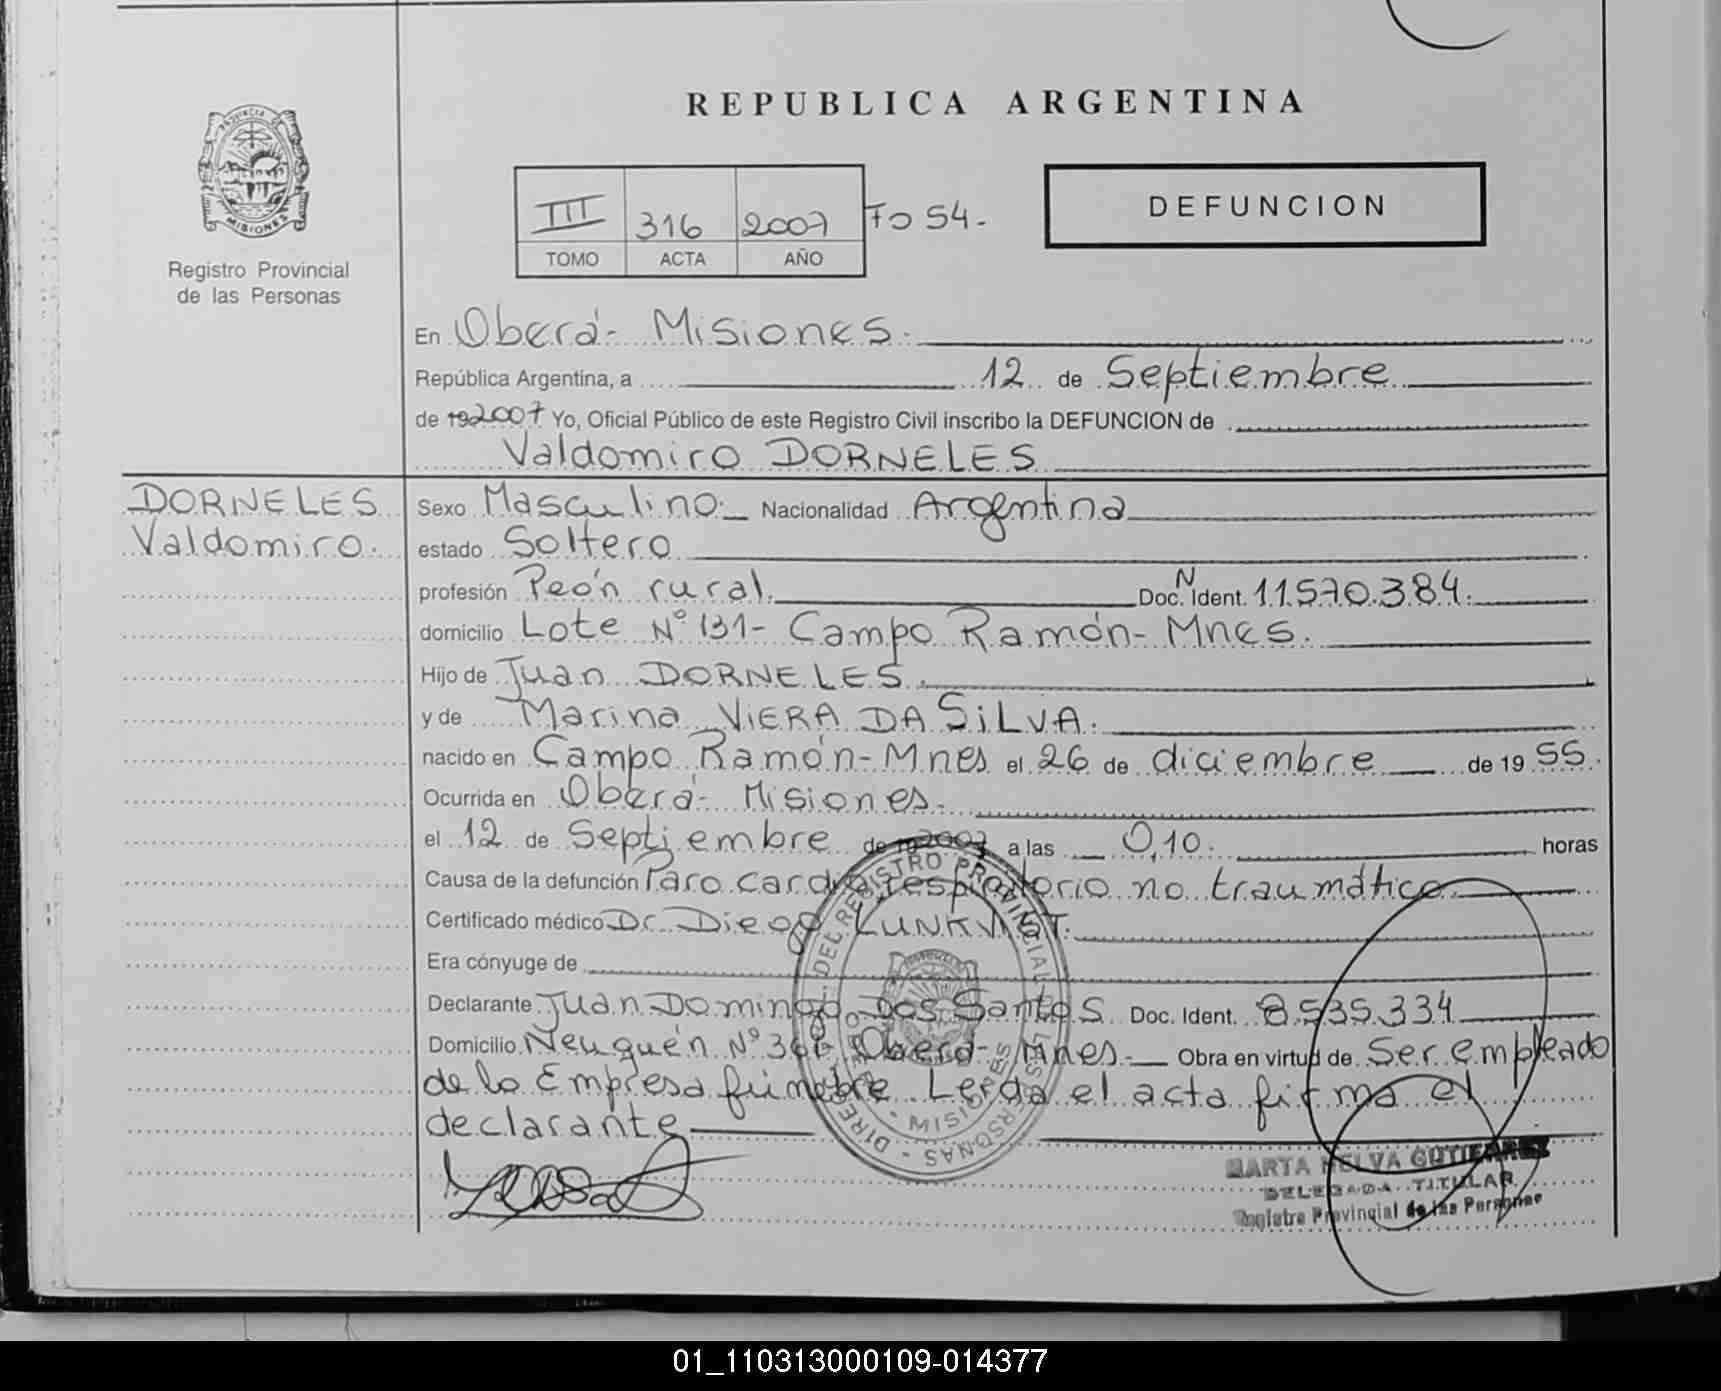 REPUBLICA ARGENTINA
PROVINCIA DE
MISIONES
Registro Provincial
de las Personas
III 316 2007 Fo 54.-
TOMO ACTA AÑO
DEFUNCION
En Oberá- Misiones.-
República Argentina, a 12 de Septiembre
de 192007 Yo, Oficial Público de este Registro Civil inscribo la DEFUNCION de
Valdomiro DORNELES
DORNELES
Valdomiro.
Sexo Masculino.- Nacionalidad Argentina
estado Soltero
profesión Peón rural. Doc. N Ident. 11.570.384.
domicilio Lote N° 131- Campo Ramón- Mnes.
Hijo de Juan DORNELES.
y de Marina VIERA DA SILVA.
nacido en Campo Ramón- Mnes el 26 de diciembre de 19 55.
Ocurrida en Oberá- Misiones.
el 12 de Septiembre de 192007 a las 0,10. horas
Causa de la defunción Paro cardio respiratorio no traumático
Certificado médico Dr. Diego LUNKVIST.
Era cónyuge de
Declarante Juan Domingo Dos Santos Doc. Ident. 8.535.334
Domicilio Neuquén N° Oberá- Mnes.- Obra en virtud de Ser empleado
de la Empresa fúnebre Leída el acta firma el
declarante
DEL REGISTRO PROVINCIAL
MISIONES
MARTA NELVA GUTIERREZ
DELEGADA TITULAR
Registro Provincial de las Personas
01_110313000109-014377